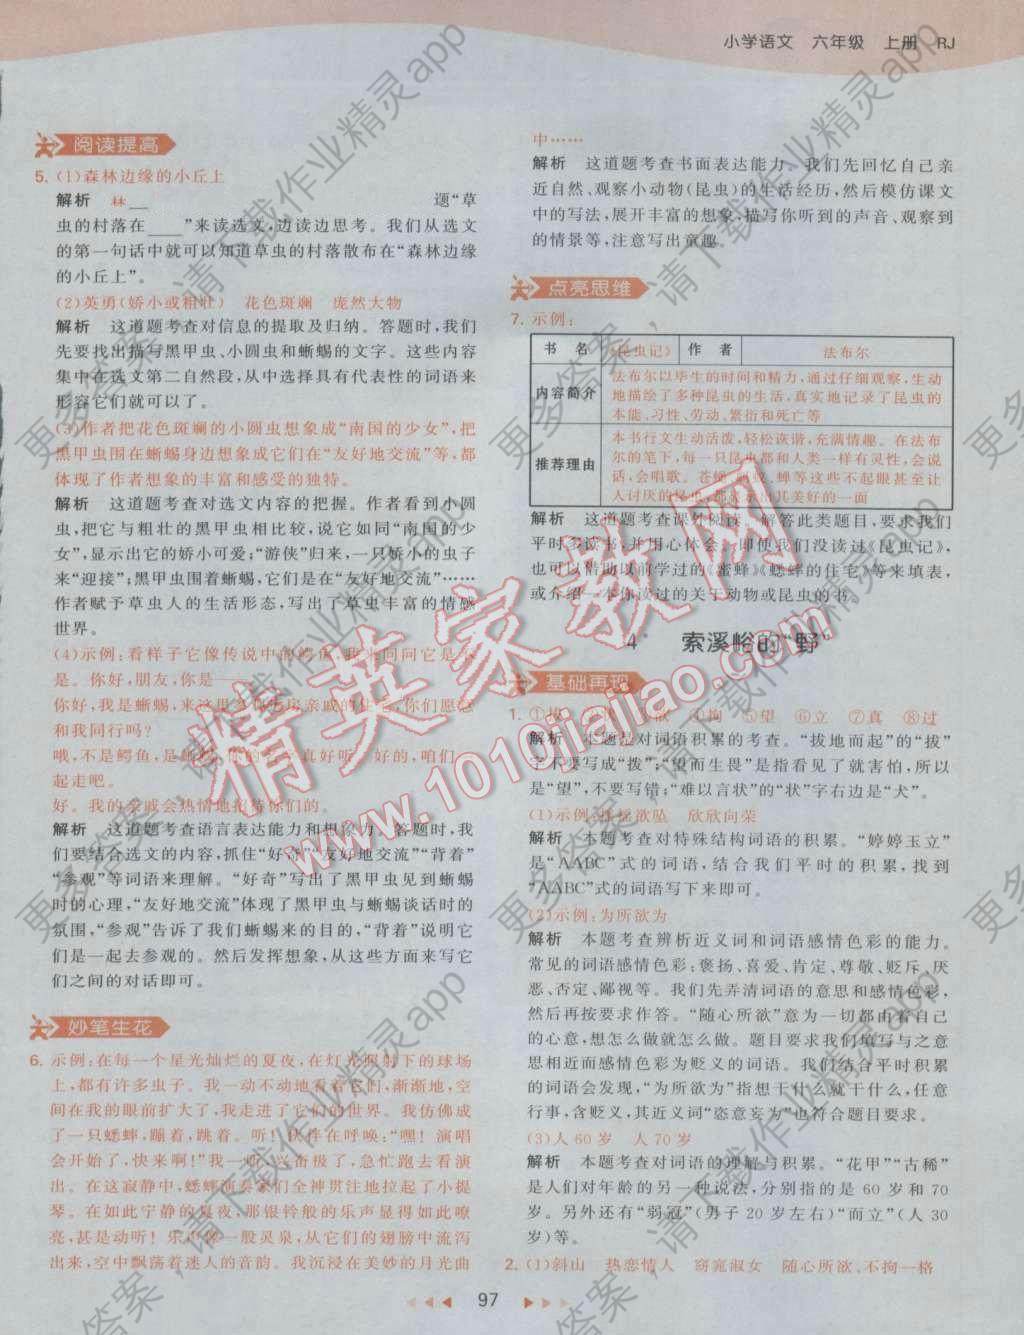 小学语文 六年级 上册 RJ
阅读提高
5. (1)森林边缘的小丘上
解析 题“草
虫的村落在____”来读选文,边读边思考。我们从选文
的第一句话中就可以知道草虫的村落散布在“森林边缘
的小丘上”。
(2)英勇(娇小或粗壮) 花色斑斓 庞然大物
解析 这道题考查对信息的提取及归纳。答题时,我们
先要找出描写黑甲虫、小圆虫和蜥蜴的文字。这些内容
集中在选文第二自然段,从中选择具有代表性的词语来
形容它们就可以了。
(3)作者把花色斑斓的小圆虫想象成“南国的少女”,把
黑甲虫围在蜥蜴身边想象成它们在“友好地交流”等,都
体现了作者想象的丰富和感受的独特。
解析 这道题考查对选文内容的把握。作者看到小圆
虫,把它与粗壮的黑甲虫相比较,说它如同“南国的少
女”,显示出它的娇小可爱;“游侠”归来,一只娇小的虫子
来“迎接”;黑甲虫围着蜥蜴,它们是在“友好地交流”……
作者赋予草虫人的生活形态,写出了草虫丰富的情感
世界。
(4)示例:看样子它像传说中的鳄鱼,我来问问它是不
是。你好,朋友,你是——
你好,我是蜥蜴,来这里 亲戚的,你们愿意
和我同行吗?
哦,不是鳄鱼,是蜥蜴,你的 真好听。好的,咱们一
起走吧。
好。我的亲戚会热情地招待你们的。
解析 这道题考查语言表达能力和想象力。答题时,我
们要结合选文的内容,抓住“好奇”“友好地交流”“背着”
“参观”等词语来理解。“好奇”写出了黑甲虫见到蜥蜴
时的心理,“友好地交流”体现了黑甲虫与蜥蜴谈话时的
氛围,“参观”告诉了我们蜥蜴来的目的,“背着”说明它
们是一起去参观的。然后发挥想象,从这些方面来写它
们之间的对话即可。
妙笔生花
6. 示例:在每一个星光灿烂的夏夜,在灯光照射下的球场
上,都有许多虫子。我一动不动地看着它们,渐渐地,空
间在我的眼前扩大了,我走进了它们的世界。我仿佛成
了一只蟋蟀,蹦着,跳着。听!伙伴在呼唤:“嘿!演唱
会开始了,快来啊!”我一听,兴奋极了,急忙跑去看演
出。在这寂静中,蟋蟀演奏家们全神贯注地拉起了小提
琴。在如此宁静的夏夜,那银铃般的乐声显得如此嘹
亮,甚是动听!乐声像一股灵泉,从它们的翅膀中飞出
来,空中飘荡着迷人的音韵。我沉浸在美妙的月光曲
中……
解析 这道题考查书面表达能力。我们先回忆自己亲
近自然、观察小动物(昆虫)的生活经历,然后模仿课文
中的写法,展开丰富的想象,描写你听到的声音、观察到
的情景等,注意写出童趣。
点亮思维
7. 示例:
书 名 《昆虫记》 作 者 法布尔
内容简介 法布尔以毕生的时间和精力,通过仔细观察,生动
地描绘了多种昆虫的生活,真实地记录了昆虫的
本能、习性、劳动、繁衍和死亡等
推荐理由 本书行文生动活泼,轻松诙谐,充满情趣。在法布
尔的笔下,每一只昆虫都和人类一样有灵性,会说
话,会唱歌。苍蝇、蚊、蝉等这些不起眼甚至让
人讨厌的昆虫,都显示出其美好的一面
解析 这道题考查课外阅读。解答此类题目,要求我们
平时多读书,并用心体会。即使我们没读过《昆虫记》,
也可以借助以前学过的《蜜蜂》《蟋蟀的住宅》等来填表,
或介绍一本你读过的关于动物或昆虫的书。
4* 索溪峪的“野”
基础再现
1. ①拔 ③欲 ④拘 ⑤望 ⑥立 ⑦真 ⑧过
解析 本题是对词语积累的考查。“拔地而起”的“拔”
字不要写成“拨”;“望而生畏”是指看见了就害怕,所以
是“望”,不要写错;“难以言状”的“状”字右边是“犬”。
(1)示例:摇摇欲坠 欣欣向荣
解析 本题考查对特殊结构词语的积累。“婷婷玉立”
是“AABC”式的词语,结合我们平时的积累,找到
“AABC”式的词语写下来即可。
(2)示例:为所欲为
解析 本题考查辨析近义词和词语感情色彩的能力。
常见的词语感情色彩:褒扬、喜爱、肯定、尊敬、贬斥、厌
恶、否定、鄙视等。我们先弄清词语的意思和感情色彩,
然后再按要求作答。“随心所欲”意为一切都由着自己
的心意,想怎么做就怎么做。题目要求我们填写与之意
思相近而感情色彩为贬义的词语。我们回忆学过的词
语就会发现,“为所欲为”意思是想干什么就干什么,任意
行事,含贬义,其近义词“恣意妄为”也符合题目要求。
(3)人 60 岁 人 70 岁
解析 本题考查对词语的理解与积累。“花甲”“古稀”
是人们对年龄的另一种说法,分别指的是 60 岁和 70
岁。另外还有“弱冠”(男子 20 岁左右)“而立”(人 30
岁)等。
2. (1)斜山 热恋情人 窈窕淑女 随心所欲、不拘一格
97
精英家教网
www.1010jiajiao.com
更多答案,请下载作业精灵app